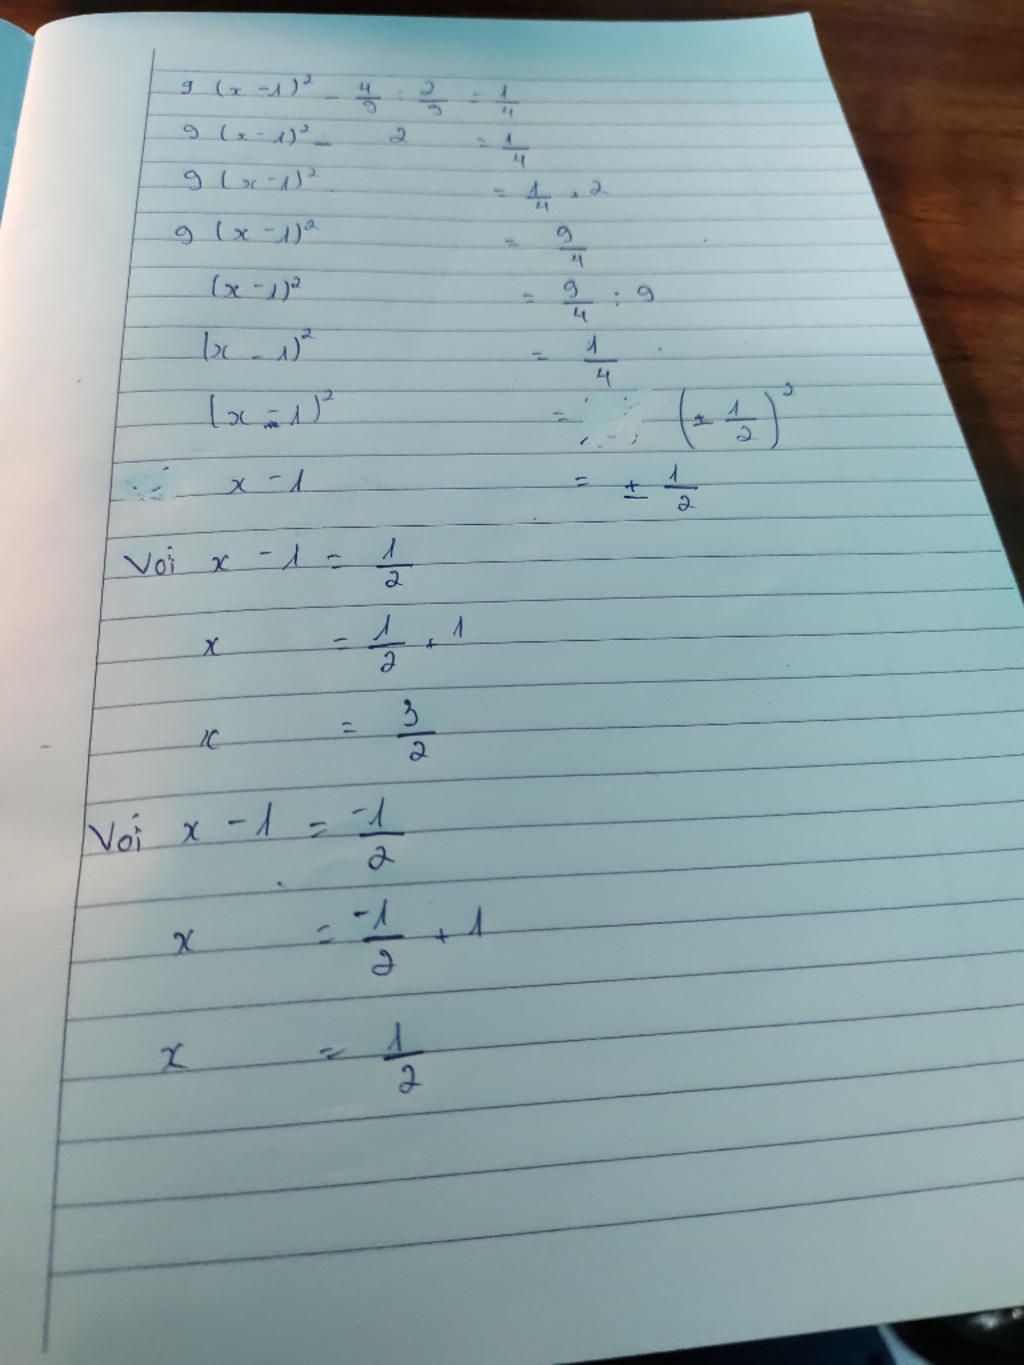 9 (x - 1)² - 4/9 : 2/9 = 1/4
9 (x - 1)² - 2 = 1/4
9 (x - 1)² = 1/4 + 2
9 (x - 1)² = 9/4
(x - 1)² = 9/4 : 9
(x - 1)² = 1/4
(x - 1)² = (± 1/2)²
x - 1 = ± 1/2
Với x - 1 = 1/2
x = 1/2 + 1
x = 3/2
Với x - 1 = -1/2
x = -1/2 + 1
x = 1/2